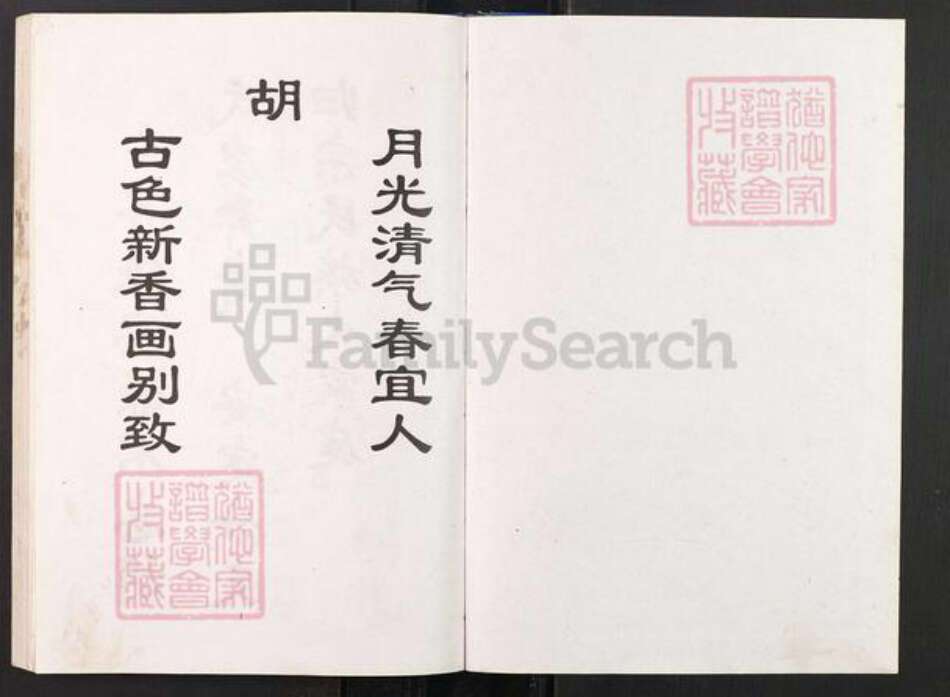 猶他家
譜學會
收藏
月光清气春宜人
胡
古色新香画别致
猶他家
譜學會
收藏
FamilySearch